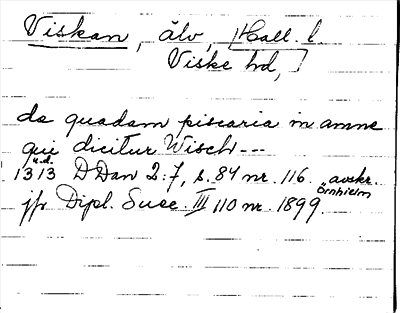 Viskan, älv, Hall. l
Viske hd,
de quadam piscaria in amne
qui dicitur Wisch---
u.d.
1313 DDan 2:7, s. 84 nr. 116. avskr. Örnhielm
jfr Dipl. Suec III 110 nr 1899